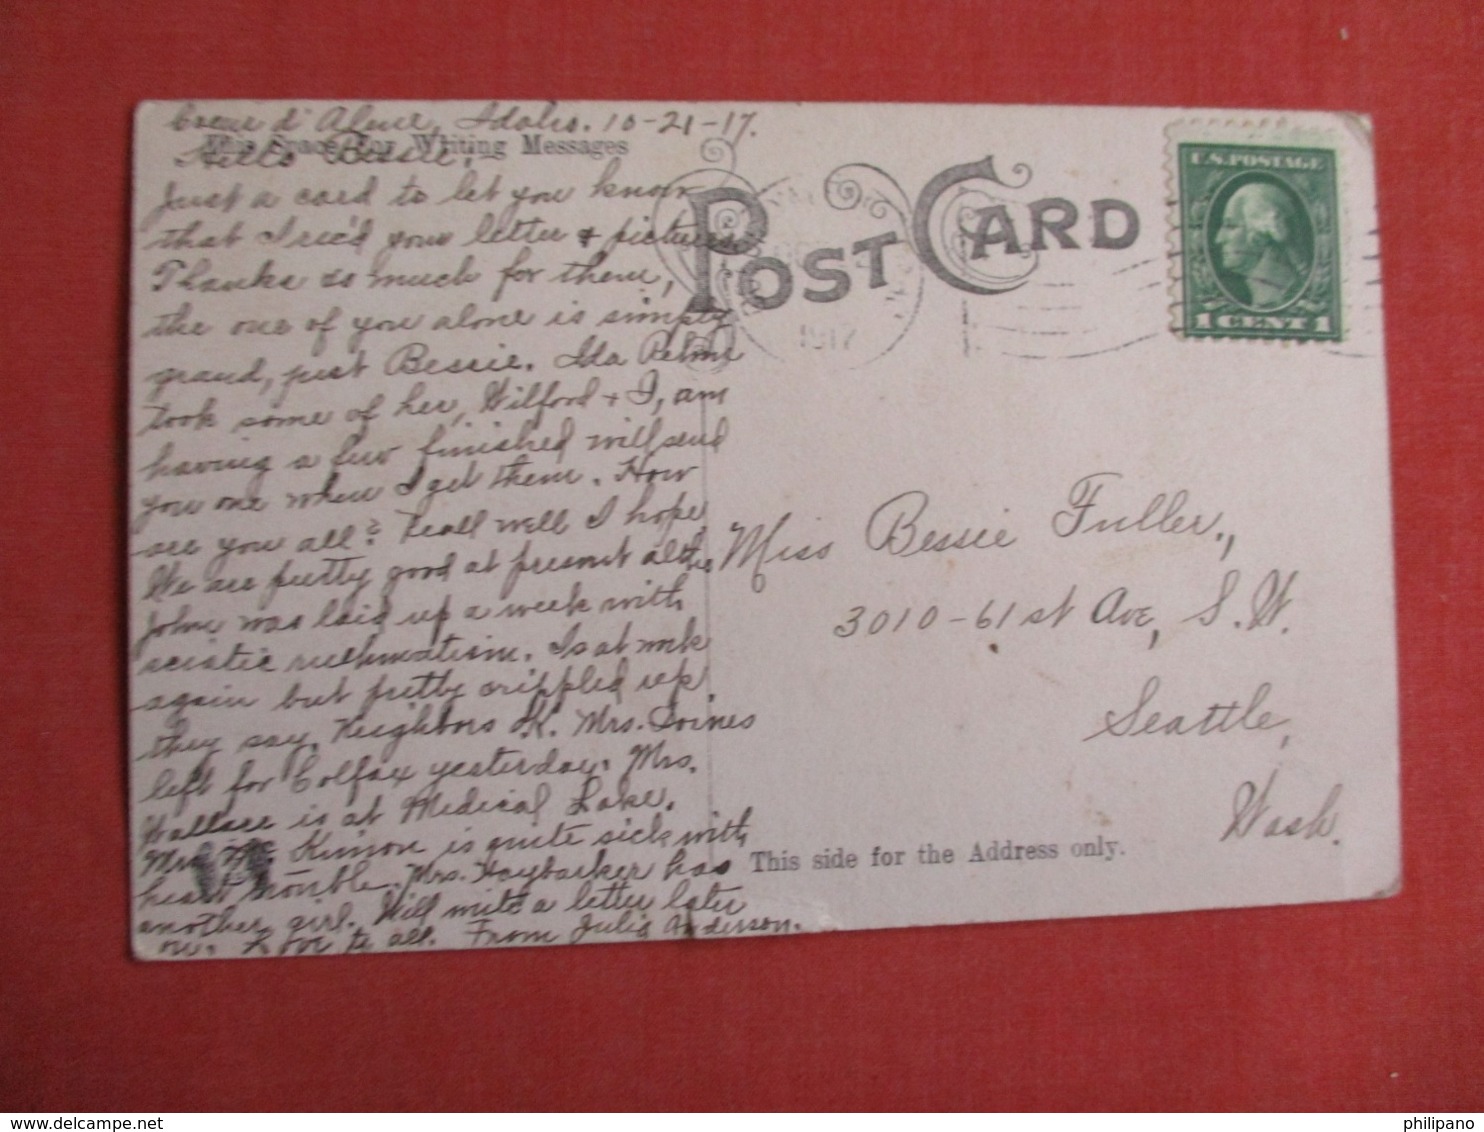 Coeur d'Alene, Idaho. 10-21-17.
This Space For Writing Messages
Hello Bessie.
Just a card to let you know
that I rec'd your letter + pictures
Thanks so much for them,
the one of you alone is simply
grand, just Bessie. Ida
took some of her, Wilford + I, am
having a few finished will send
you one when I get them. How
are you all? well I hope
We are pretty good at present altho
John was laid up a week with
sciatic ruehmatism. Is at work
again but pretty crippled up
they say. Neighbors O.K. Mrs.
left for Colfax yesterday. Mrs.
Wallace is at Medical Lake.
Mrs. Mc Kinnon is quite sick with
heart trouble. Mrs. Haybarker has
another girl. Will write a letter later
on. Love to all. From Julia Anderson.
POST CARD
1917
U.S. POSTAGE
1 CENT 1
Miss Bessie Fuller,
3010-61st Ave, S.W.
Seattle,
Wash.
This side for the Address only.
philipano